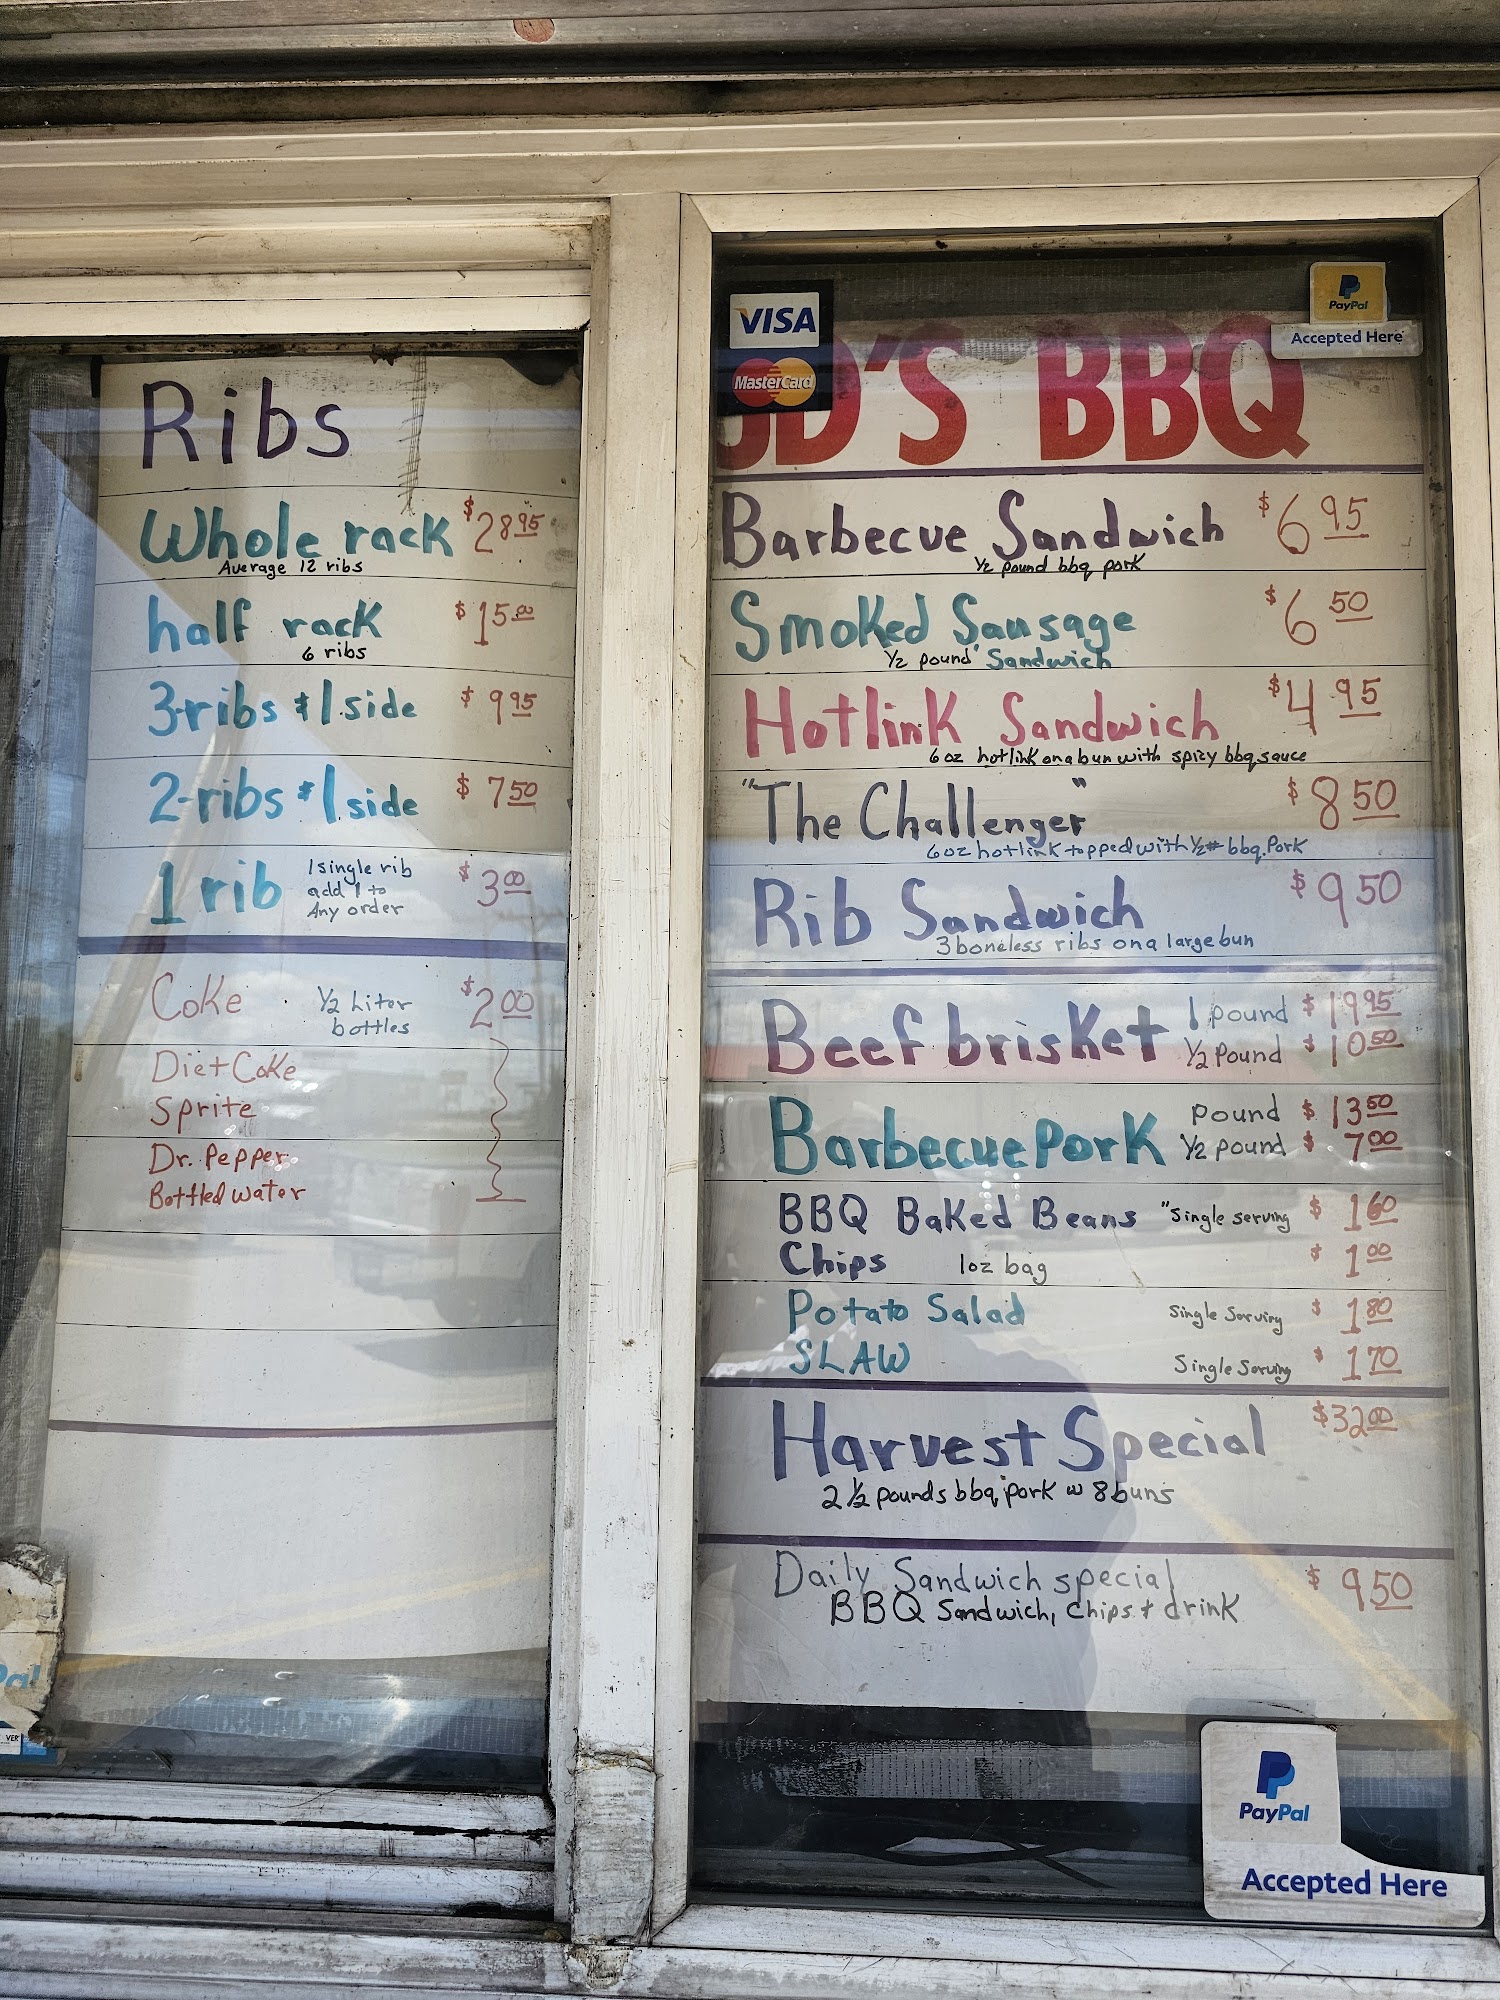 Ribs
Whole rack $28.95
Average 12 ribs
half rack $15.00
6 ribs
3-ribs & 1 side $9.95
2-ribs & 1 side $7.50
1 rib 1 single rib add 1 to Any order $3.00
Coke 1/2 Liter bottles $2.00
Diet Coke
Sprite
Dr. Pepper
Bottled water
VISA
MasterCard
PayPal
Accepted Here
D'S BBQ
Barbecue Sandwich $6.95
1/2 pound bbq pork
Smoked Sausage $6.50
1/2 pound Sandwich
Hotlink Sandwich $4.95
6 oz hotlink on a bun with spicy bbq sauce
"The Challenger" $8.50
6 oz hotlink topped with 1/2# bbq Pork
Rib Sandwich $9.50
3 boneless ribs on a large bun
Beef brisket 1 pound $19.95
1/2 Pound $10.50
Barbecue Pork pound $13.50
1/2 pound $7.00
BBQ Baked Beans "Single serving $1.60
Chips 1oz bag $1.00
Potato Salad Single Serving $1.80
SLAW Single Serving $1.70
Harvest Special $32.00
2 1/2 pounds bbq pork w 8 buns
Daily Sandwich special $9.50
BBQ Sandwich, Chips + drink
PayPal
Accepted Here